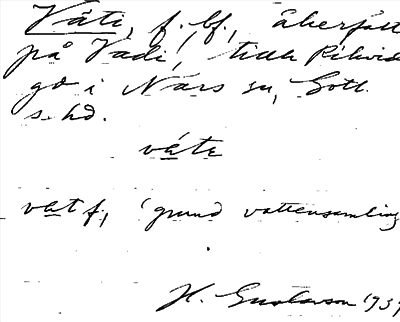 Váti, f. bf., åkerfält
på Vadi, till Rikvide
gd i När sn, Gotl.
s. hd.
váte
vat f, 'grund vattensamling
H. Gustavson 1939